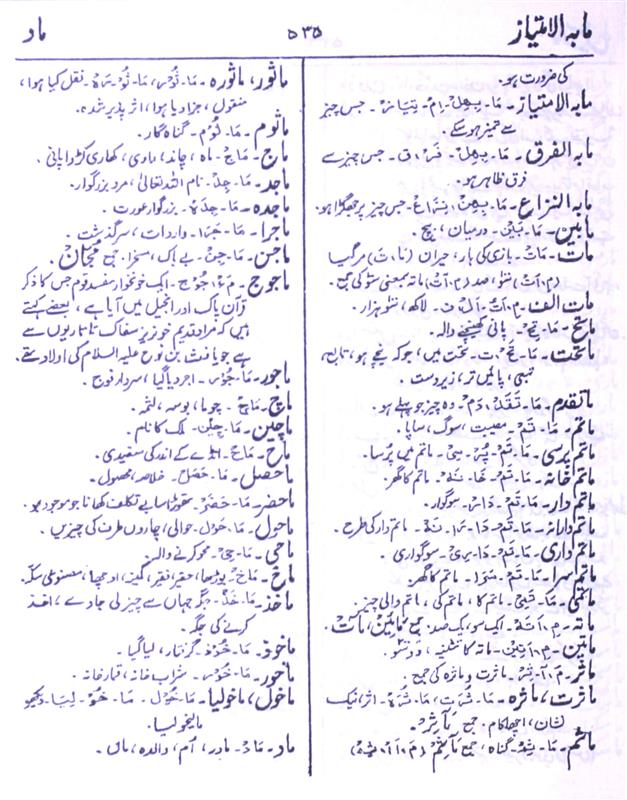 مابہ الامتیاز
۵۳۵
ماد
کی ضرورت ہو۔
مابہ الامتیاز۔ مَا۔ بِہِل۔ اِم۔ تِیَاز۔ جس چیز
سے تمیز ہو سکے۔
مابہ الفرق۔ مَا۔ بِہِل۔ فَر۔ ق۔ جس چیز سے
فرق ظاہر ہو۔
مابہ النزاع۔ مَا۔ بِہِن۔ نِزَاع۔ جس چیز پر جھگڑا ہو۔
مابین۔ مَا۔ بَیْن۔ درمیان، بیچ۔
مات۔ مَات۔ بازی کی ہار، حیران (مَا،تَ) مرگیا
(مِ،آت) سَو، صد (مِ،آت) ماتہ بمعنی سَو کی جمع۔
مات الف۔ مِ،آت۔ اَل۔ ف۔ لاکھ، سَو ہزار۔
ماتح۔ مَا۔ تِح۔ پانی کھینچنے والا۔
ماتحت۔ مَا۔ تَح۔ ت۔ تحت میں، جو کہ نیچے ہو، تابع،
زیردست۔
ماتقدم۔ مَا۔ تَقَد۔ دَم۔ وہ چیز جو پہلے ہو۔
ماتم۔ مَا۔ تَم۔ مصیبت، سوگ، سیاپا۔
ماتم پرسی۔ مَا۔ تَم۔ پُر۔ سِی۔ ماتم میں پُرسا۔
ماتم خانہ۔ مَا۔ تَم۔ خَا۔ نَہ۔ ماتم کا گھر۔
ماتم دار۔ مَا۔ تَم۔ دَار۔ سوگوار۔
ماتم دارانہ۔ مَا۔ تَم۔ دَا۔ رَا۔ نَہ۔ ماتم دار کی طرح۔
ماتم داری۔ مَا۔ تَم۔ دَا۔ رِی۔ سوگواری۔
ماتم سرا۔ مَا۔ تَم۔ سَرَا۔ ماتم کا گھر۔
ماتمی۔ مَا۔ تَمِی۔ ماتم کا، ماتم کی، ماتم والی چیز۔
ماتہ۔ مِ،اَتَہ۔ ایک سو، یک صد۔ جمع مِائین، مات۔
ماتین۔ مِ،اَتَین۔ ماتہ کا تثنیہ، دو سَو۔
ماثر۔ مَ،آ۔ ثِر۔ ماثرت و ماثرہ کی جمع۔
ماثرت، ماثرہ۔ مَا۔ ثُرَت، مَا۔ ثُرَہ۔ اثر، نیک
نشان، اچھا کام۔ جمع مَآثِر۔
ماثم۔ مَا۔ ثِم۔ گناہ، جمع مَآثِم
ماثور، ماثورہ۔ مَا۔ ثُور، مَا۔ ثُو۔ رَہ۔ نقل کیا ہوا،
منقول، جزا دیا ہوا، اثر پذیر شدہ۔
ماثوم۔ مَا۔ ثُوم۔ گناہ گار۔
ماج۔ مَاج۔ ماہ، چاند، مادی، کھاری کڑوا پانی۔
ماجد۔ مَا۔ جِد۔ نام اللہ تعالیٰ، مرد بزرگوار۔
ماجدہ۔ مَا۔ جِدَہ۔ بزرگوار عورت۔
ماجرا۔ مَا۔ جَرَا۔ واردات، سرگذشت۔
ماجن۔ مَا۔ جِن۔ بے باک، مسخرا۔ جمع مُجَّان۔
ماجوج۔ مَ،ء۔ جُوج۔ ایک خونخوار مفسد قوم جس کا ذکر
قرآن پاک اور انجیل میں آیا ہے، بعضے کہتے
ہیں کہ مراد قدیم خوں ریز سفاک تاتاریوں سے
ہے جو یافث بن نوح علیہ السلام کی اولاد تھے۔
ماجور۔ مَا۔ جُور۔ اجر دیا گیا، سردار فوج۔
ماچ۔ مَاچ۔ چوما، بوسہ، لثمہ۔
ماچین۔ مَا۔ چِین۔ ملک کا نام۔
ماح۔ مَاح۔ انڈے کے اندر کی سفیدی۔
ماحصل۔ مَا۔ حَصَل۔ خلاصہ، محصول۔
ماحضر۔ مَا۔ حَضَر۔ تھوڑا سا بے تکلف کھانا جو موجود ہو۔
ماحول۔ مَا۔ حَول۔ حوالی، چاروں طرف کی چیزیں۔
ماحی۔ مَا۔ حِی۔ محو کرنے والا۔
ماخ۔ مَاخ۔ بوڑھا، حقیر فقیر، کمینہ، اوچھا، مصنوعی سکّہ
ماخذ۔ مَا۔ خَذ۔ جگہ جہاں سے چیز لی جاوے، اخذ
کرنے کی جگہ۔
ماخوذ۔ مَا۔ خُوذ۔ گرفتار، لیا گیا۔
ماخور۔ مَا۔ خُور۔ شراب خانہ، قمار خانہ۔
ماخول، ماخولیا۔ مَا۔ خُول۔ مَا۔ خُو۔ لِیَا۔ دیکھو
مالیخولیا۔
ماد۔ مَاد۔ مادر، اُم، والدہ، ماں۔